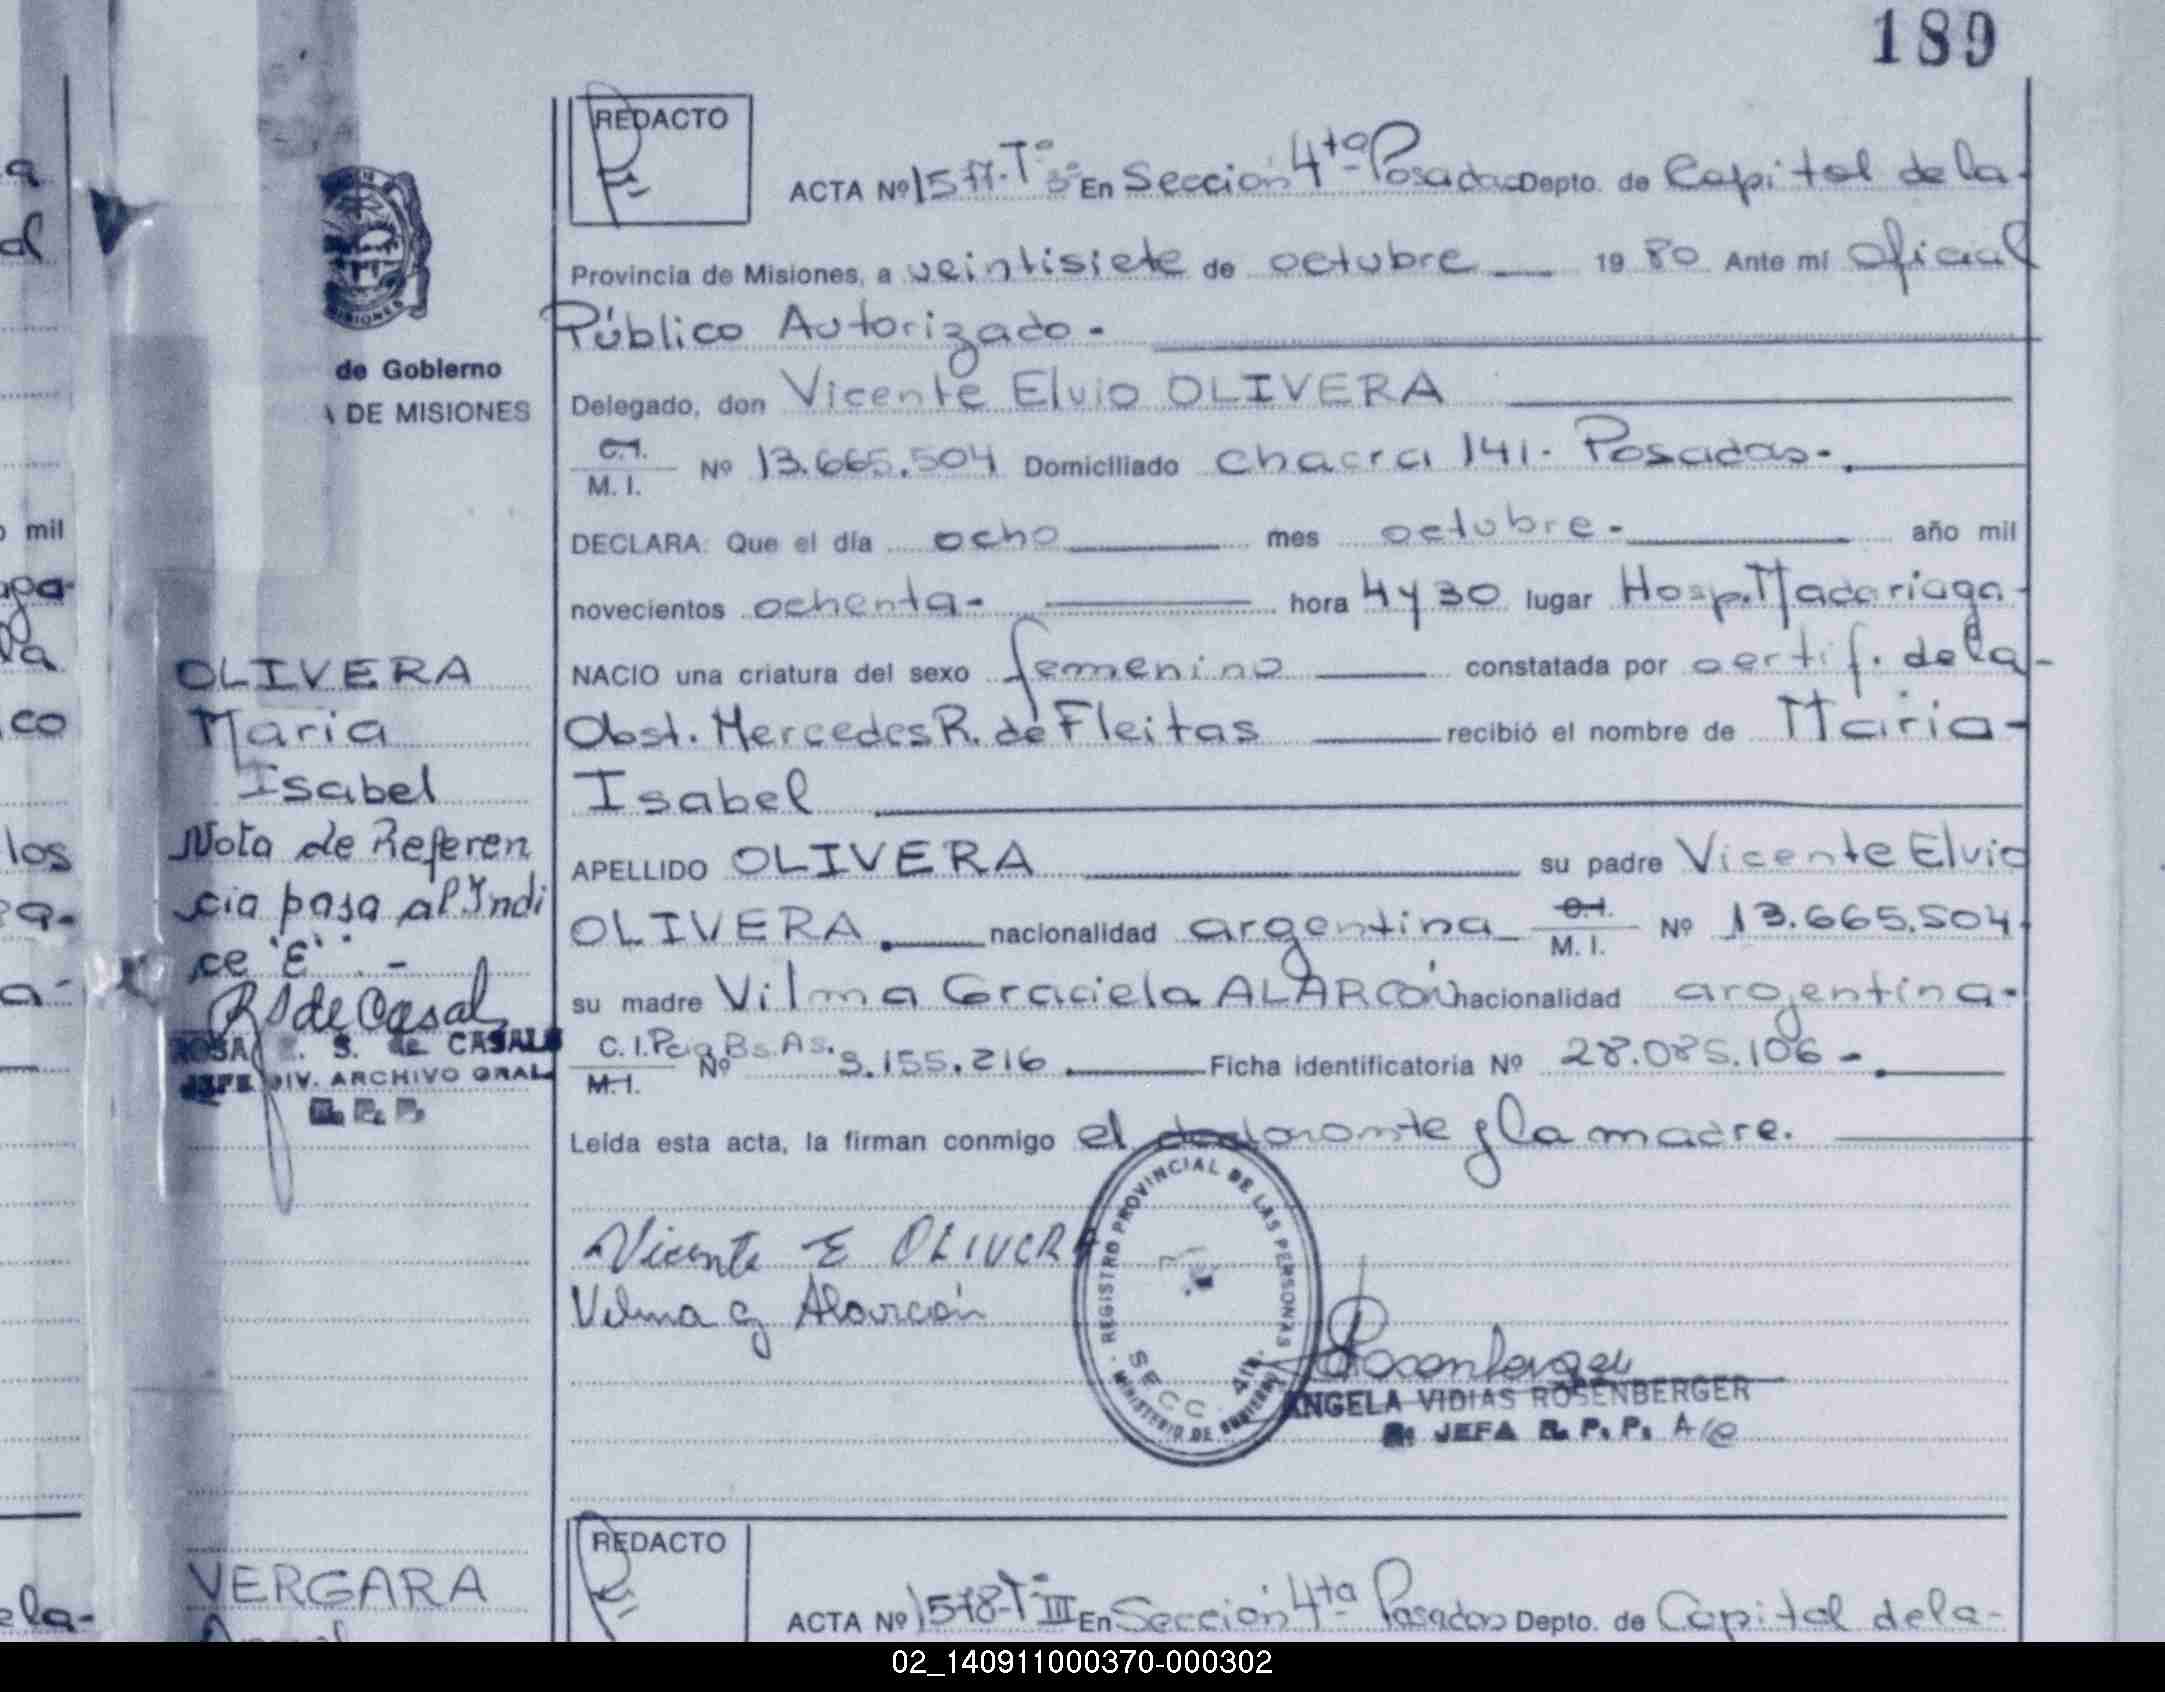 189
REDACTO
ACTA Nº 1577-Tº 3º En Sección 4ta Posadas Depto. de Capital de la-
Provincia de Misiones, a veintisiete de octubre 19 80 Ante mí Oficial
Público Autorizado.
Delegado, don Vicente Elvio OLIVERA
C.I. M. I. Nº 13.665.504 Domiciliado chacra 141. Posadas.
DECLARA: Que el día ocho mes octubre. año mil
novecientos ochenta- hora 4 y 30 lugar Hosp. Madariaga-
NACIO una criatura del sexo femenino constatada por certif. de la-
Obst. Mercedes R. de Fleitas recibió el nombre de Maria-
Isabel
APELLIDO OLIVERA su padre Vicente Elvio
OLIVERA nacionalidad argentina C.I. M. I. Nº 13.665.504
su madre Vilma Graciela ALARCÓN nacionalidad argentina-
C. I. Pcia Bs. As. M. I. Nº 9.155.216 Ficha identificatoria Nº 28.085.106-
Leída esta acta, la firman conmigo el declarante y la madre.
Vicente E OLIVERA
Vilma G Alarcón
REGISTRO PROVINCIAL DE LAS PERSONAS
SECC. 4ta.
MINISTERIO DE GOBIERNO
Rosenberger
ANGELA VIDIAS ROSENBERGER
JEFA R. P. P. A/C
de Gobierno
DE MISIONES
OLIVERA
Maria
Isabel
Nota de Referen
cia pasa al Indi
ce "E". -
R S de Casal
ROSA E. S. de CASALS
JEFE DIV. ARCHIVO GRAL
R. P. P.
REDACTO
VERGARA
ACTA Nº 1578-Tº III En Sección 4ta Posadas Depto. de Capital de la-
a
al
mil
la
co
los
a-
ela-
02_140911000370-000302